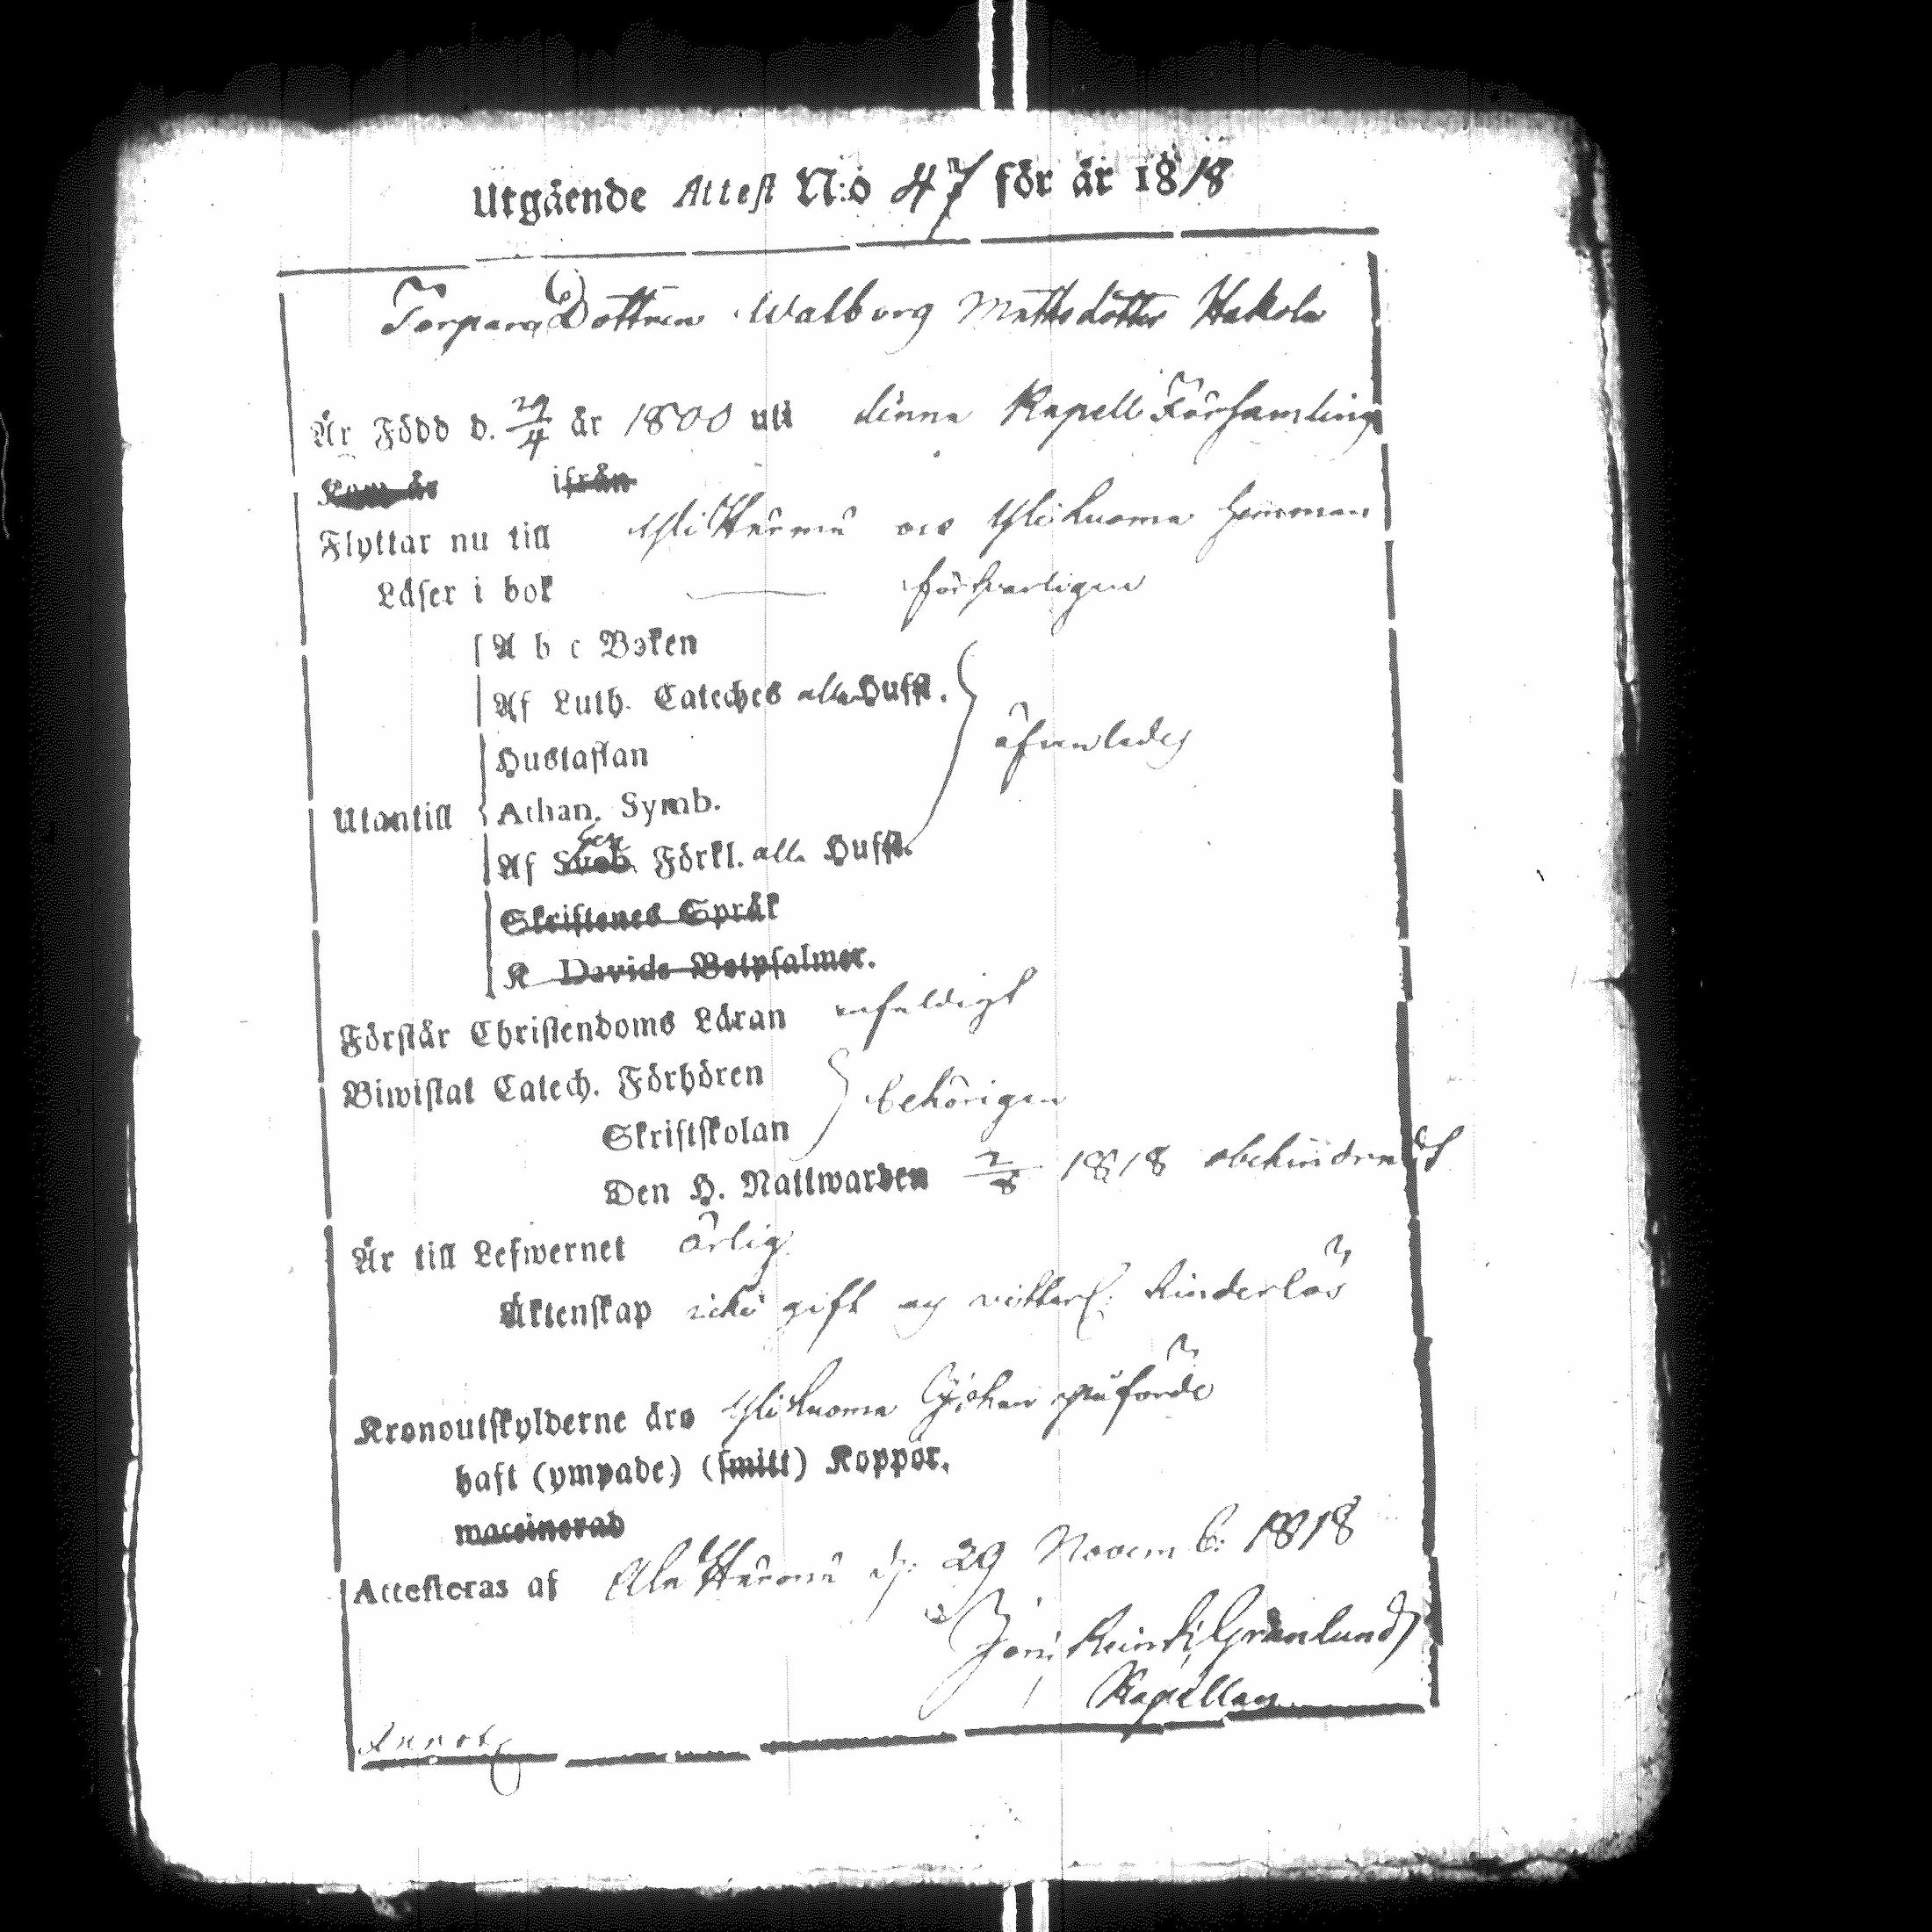 Utgående Attest N:o 47 för år 1818
Torpare Dottren Walborg Mattsdotter Hakola
Är Född d. 29/4 år 1800 uti denna Kapell Församling
Kom år ifrån
Flyttar nu till Yli Härmä och Ylikuoma hemman
Läser i bok — försvarligen
A b c Boken
Af Luth. Cateches alla Hufst.
Hustaflan
äfvenledes
Utantill
Athan. Symb.
Af Sveb. Förkl. alla Hufst.
Skriftenes Språk
K Davids Botpsalmer.
Förstår Christendoms Läran enfaldigt
Biwistat Catech. Förhören
behörigen
Skriftskolan
Den H. Nattwarden 2/8 1818 obehindrad
Är till Lefwernet ärlig
Äktenskap icke gift
Kronoutskylderne äro Ylikuoma påförde
haft (ympade) (smitt) Koppor.
waccinerad
Attesteras af Ala Härmä d: 29 Novemb: 1818
Grönlund
Kapellan
Annot